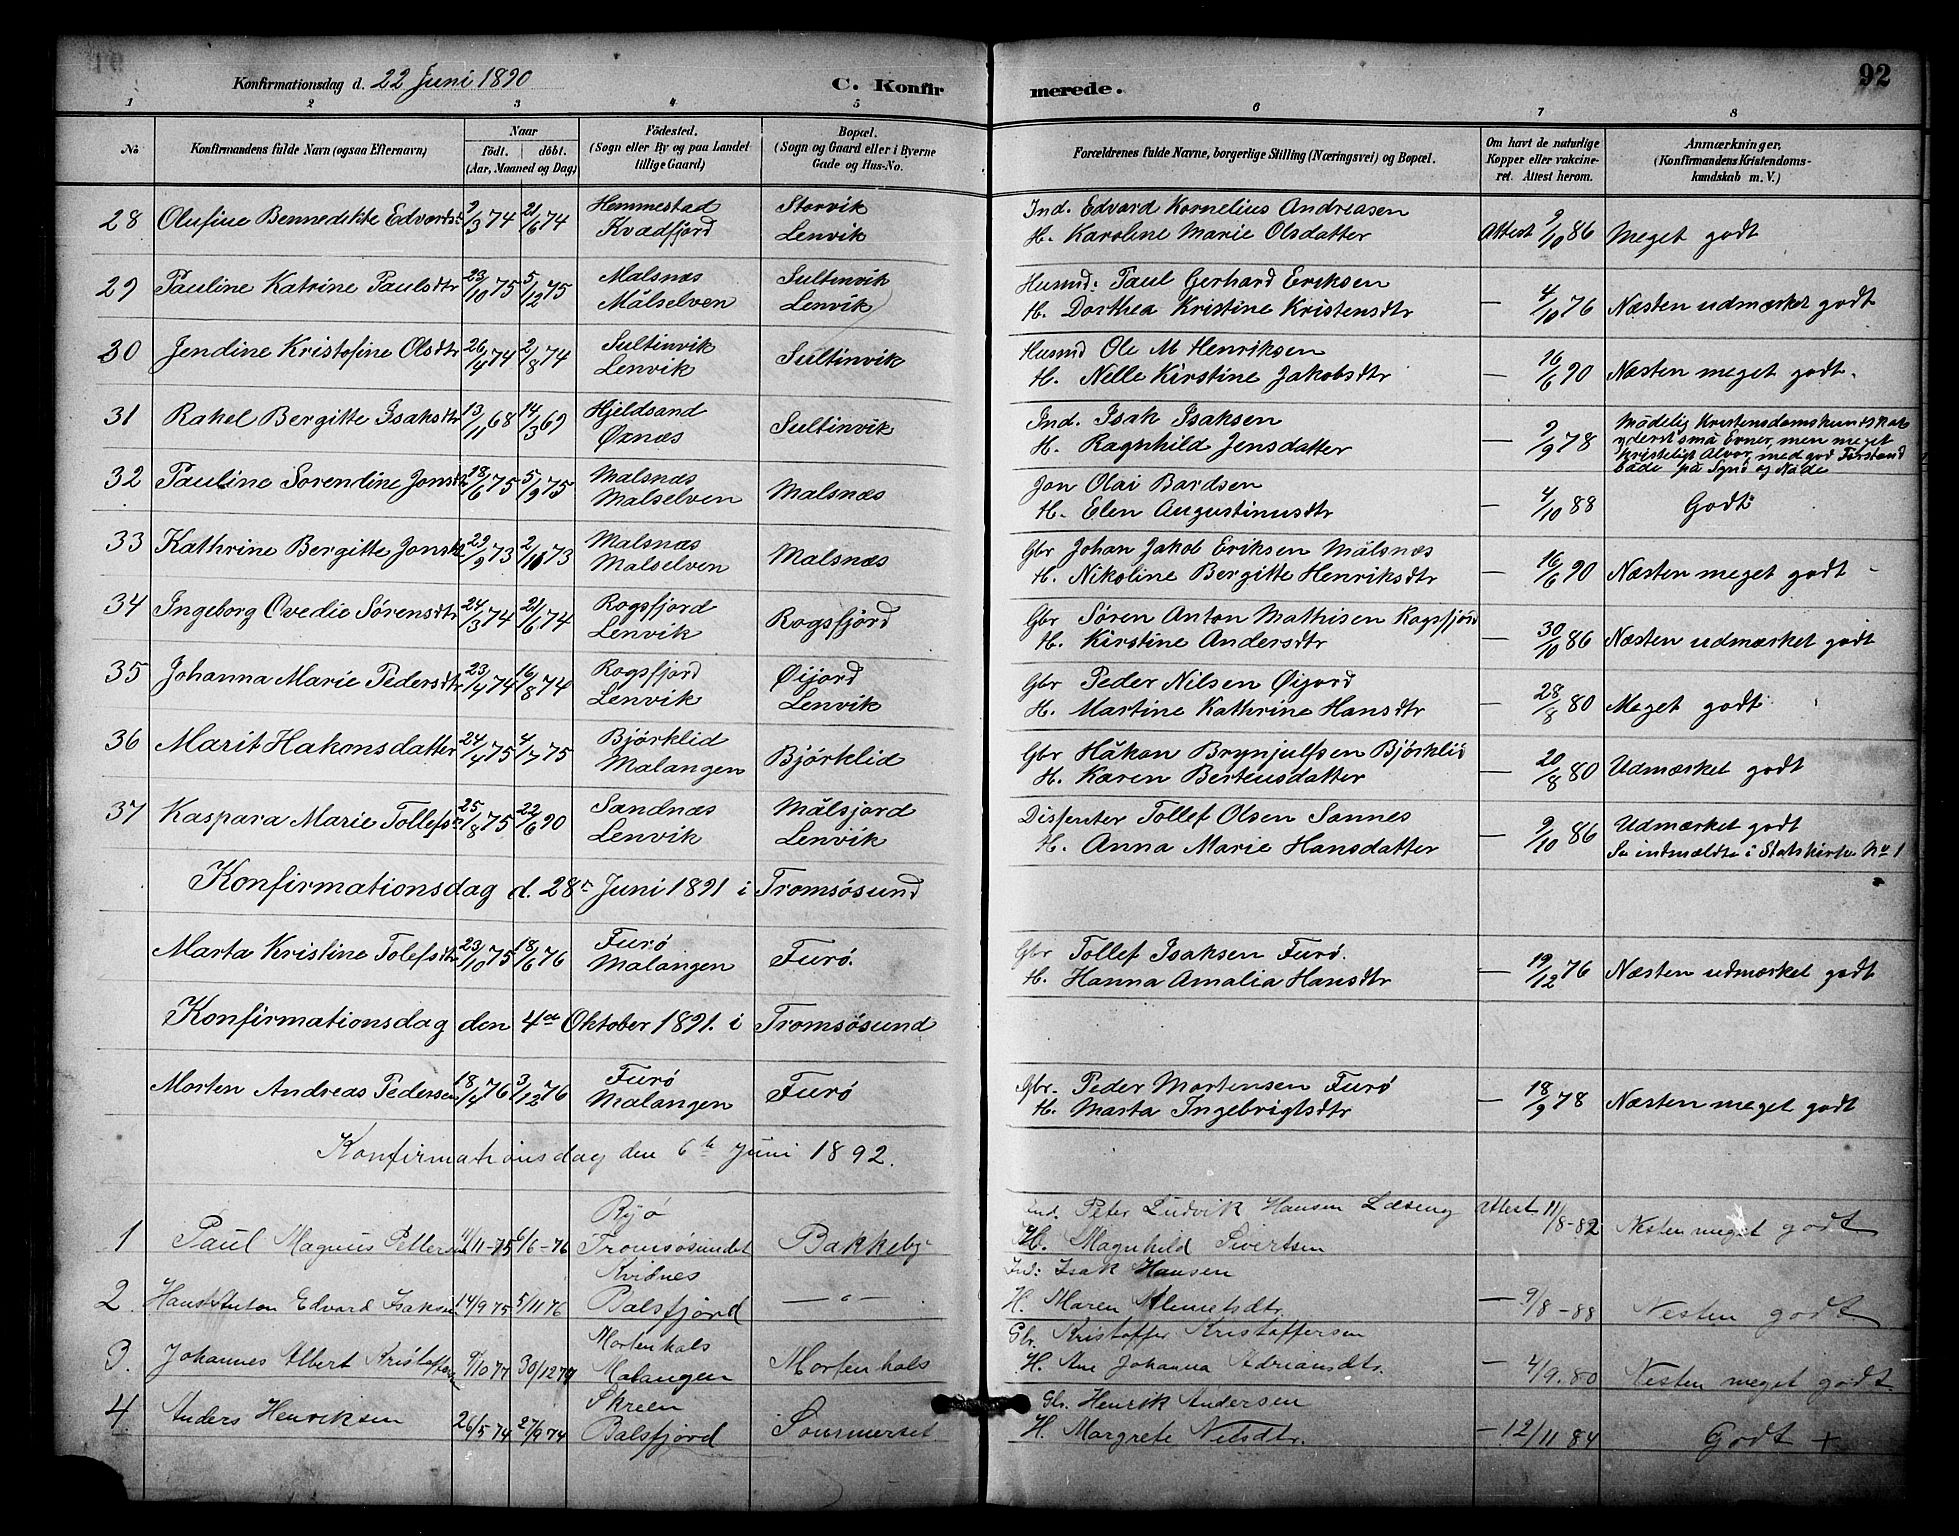 Konfirmationsdag d. 22 Juni 1890
C. Konfirmerede.
92
1 2 3 4 5 6 7 8
No
Konfirmandens fulde Navn (ogsaa Efternavn)
Naar
födt. döbt.
(Aar, Maaned og Dag)
Födested.
(Sogn eller By og paa Landet
tillige Gaard)
Bopæl.
(Sogn og Gaard eller i Byerne
Gade og Hus-No.
Forældrenes fulde Navne, borgerlige Stilling (Næringsvei) og Bopæl.
Om havt de naturlige
Kopper eller vakcine-
ret. Attest herom.
Anmærkninger,
(Konfirmandens Kristendoms-
kundskab m. V.)
28 Olufine Bennedikte Edvards 9/3 74 21/6 74 Hemmestad Storvik Ind. Edvard Kornelius Andreasen
Kvædfjord Lenvik H. Karoline Marie Olsdatter Attest 9/10 86 Meget godt
29 Pauline Katrine Paulsdtr 23/10 75 5/12 75 Malsnæs Sultinvik Husmd: Paul Gerhard Eriksen
Målselven Lenvik H. Dorthea Kristine Kristensdtr — 4/10 76 Næsten udmærket godt
30 Jendine Kristofine Olsdtr 26/4 74 2/8 74 Sultinvik Husmd Ole M Henriksen
Lenvik Sultinvik H. Nelle Kirstine Jakobsdtr — 16/6 90 Næsten meget godt.
31 Rakel Bergitte Isaksdtr 13/11 68 14/3 69 Hjeldsand Ind. Isak Isaksen
Øxnæs Sultinvik H. Ragnhild Jensdatter — 9/9 78 Mådelig Kristensdomskundskab
yderst små Evner, men meget
kristeligt Alvor, med god Forstand
både på Synd og Nåde
32 Pauline Sorendine Jonsd 28/6 75 5/9 75 Malsnæs Jon Olai Bardsen
Malselven Malsnæs H. Elen Augustinusdtr — 4/10 88 Godt
33 Kathrine Bergitte Jonsd 29/9 73 2/11 73 Malsnæs Gbr Johan Jakob Eriksen Målsnæs
Malselven Malsnæs H. Nikoline Bergitte Henriksdtr — 16/6 90 Næsten meget godt
34 Ingeborg Ovedie Sørensdtr 24/3 74 21/6 74 Rogsfjord Gbr Søren Anton Mathisen Rogsfjord
Lenvik Rogsfjörd H. Kirstine Andersdtr — 30/10 86 Næsten udmærket godt
35 Johanna Marie Pedersdtr 23/4 74 16/8 74 Rogsfjord Øijord Gbr Peder Nilsen Øijord
Lenvik Lenvik H. Martine Kathrine Hansdtr — 28/8 80 Meget godt
36 Marit Hakonsdatter 24/4 75 4/7 75 Björklid Gbr Håkon Brynjulfsen Björklid
Malangen Bjørklid H. Karen Berteusdatter — 20/8 80 Udmærket godt
37 Kaspara Marie Tollefs 25/8 75 22/6 90 Sandnæs Målsjord Dissenter Tollef Olsen Sannes
Lenvik Lenvik H. Anna Marie Hansdatter — 9/10 86 Udmærket godt
Se indmældte i Statskirke No 1
Konfirmationsdag d. 28de Juni 1891 i Tromsøsund
Marta Kristine Tolefsdtr 23/10 75 18/6 76 Furø Gbr Tollef Isaksen Furö.
Malangen Furø. H. Hanna Amalia Hansdtr — 19/12 76 Næsten udmærket godt
Konfirmationsdag den 4de Oktober 1891. i Tromsøsund
Morten Andreas Pedersen 18/4 76 3/12 76 Furø Gbr. Peder Mortensen Furø
Malangen Furø H. Marta Ingebrigtsdtr — 18/9 78 Næsten meget godt
Konfirmationsdag den 6te Juni 1892.
1 Paul Magnus Petters 11/11-75 6/6-76 Ryö Ind. Peter Ludvik Hansen Attest 11/8-82
Tromsøsundet Bakkeby H. Magnhild Sivertsen Nesten meget godt
2. Hans Anton Edvard Isaksen 14/9 75 5/11 76 Kvidnes Ind: Isak Hansen
Balsfjörd —"— H. Maren Klemetsdtr — 9/8-88 Nesten godt
3. Johannes Albert Kristoffersen 9/10 77 30/12 77 Mortenhals Gbr. Kristoffer Kristoffersen
Malangen Mortenhals H. Ane Johanna Adriansdtr. — 4/9.80 Nesten meget godt
4 Anders Henriksen 26/5 74 27/9 74 Skreen Gbr. Henrik Andersen
Balsfjörd Sommerset. H. Margrete Nilsdtr. — 12/11 84 Godt +